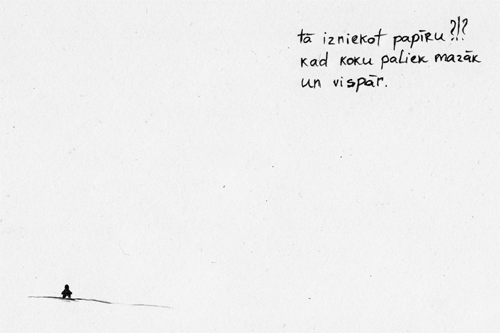 tā izniekot papīru?!?
kad koku paliek mazāk
un vispār.